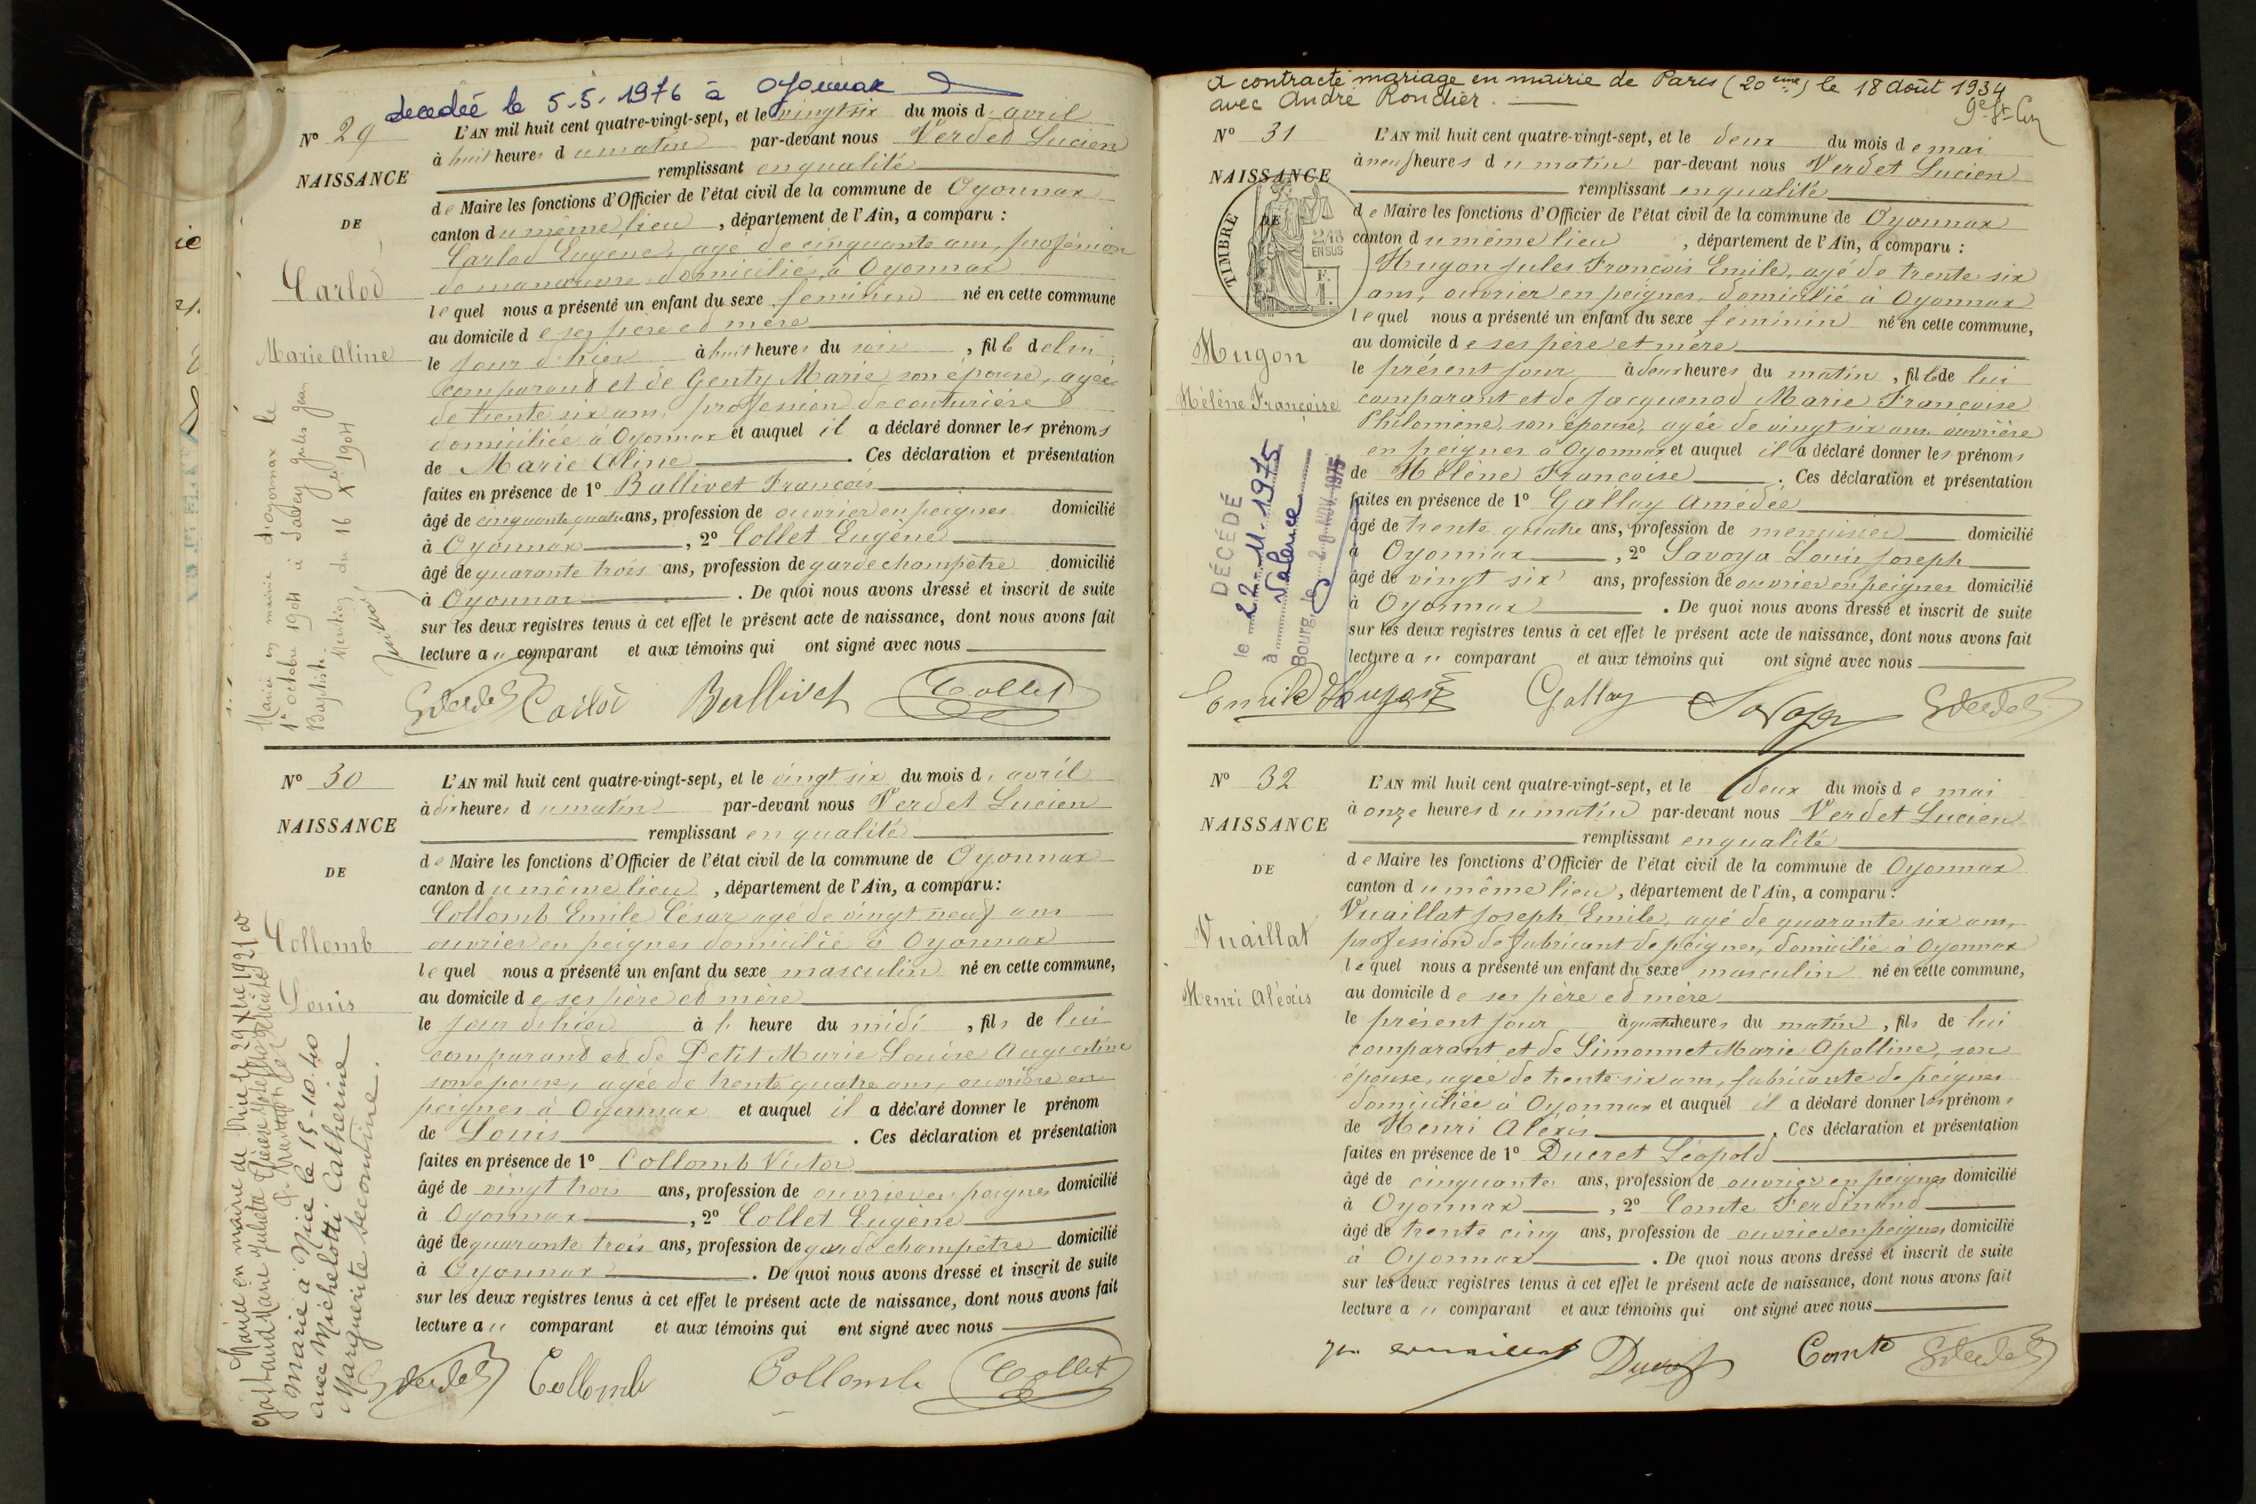 decedée le 5.5.1976 à Oyonnax
No 29
NAISSANCE
DE
Carlod
Marie Aline
Marié en mairie d'Oyonnax le
1er octobre 1904 à Jules Jean
Baptiste.
Mention du 16 Xbre 1904
L'AN mil huit cent quatre-vingt-sept, et le vingt six du mois d' avril
à huit heures du matin par-devant nous Verdet Lucien
remplissant en qualité
de Maire les fonctions d'Officier de l'état civil de la commune de Oyonnax
canton du même lieu, département de l'Ain, a comparu :
Carlod Eugène, agé de cinquante ans, profession
de manœuvre domicilié à Oyonnax
lequel nous a présenté un enfant du sexe feminin né en cette commune
au domicile de ses père et mère
le jour d'hier à huit heures du soir, fille de lui
comparant et de Genty Marie, son épouse, agée
de trente six ans, profession de couturière
domiciliée à Oyonnax et auquel il a déclaré donner les prénoms
de Marie Aline. Ces déclaration et présentation
faites en présence de 1o Ballivet François
âgé de cinquante quatre ans, profession de ouvrier en peignes domicilié
à Oyonnax, 2o Collet Eugène
âgé de quarante trois ans, profession de garde champêtre domicilié
à Oyonnax. De quoi nous avons dressé et inscrit de suite
sur les deux registres tenus à cet effet le présent acte de naissance, dont nous avons fait
lecture au comparant et aux témoins qui ont signé avec nous
Carlod Ballivet Collet
No 30
NAISSANCE
DE
Collomb
Louis
Marié en mairie de Nice le 29 Xbre 1921
Marié à Nice le 15-10-40
avec Michelotti Catherine
Marguerite Secondine.
L'AN mil huit cent quatre-vingt-sept, et le vingt six du mois d' avril
à dix heures du matin par-devant nous Verdet Lucien
remplissant en qualité
de Maire les fonctions d'Officier de l'état civil de la commune de Oyonnax
canton du même lieu, département de l'Ain, a comparu:
Collomb Emile César agé de vingt neuf ans
ouvrier en peignes domicilié à Oyonnax
lequel nous a présenté un enfant du sexe masculin né en cette commune,
au domicile de ses père et mère
le jour d'hier à heure du midi, fils de lui
comparant et de Petit Marie Louise Augustine
son épouse, agée de trente quatre ans, ouvrière en
peignes à Oyonnax et auquel il a déclaré donner le prénom
de Louis. Ces déclaration et présentation
faites en présence de 1o Collomb Victor
âgé de vingt trois ans, profession de ouvrier en peignes domicilié
à Oyonnax, 2o Collet Eugène
âgé de quarante trois ans, profession de garde champêtre domicilié
à Oyonnax. De quoi nous avons dressé et inscrit de suite
sur les deux registres tenus à cet effet le présent acte de naissance, dont nous avons fait
lecture au comparant et aux témoins qui ont signé avec nous
Collomb Collomb Collet
a contracté mariage en mairie de Paris (20ème) le 18 août 1934
avec André Rondier.
No 31
NAISSANCE
DE
TIMBRE
2/10
EN SUS
Hugon
Hélène Françoise
DÉCÉDÉ
le 22-11-1975
à Valence
Bourg, le 2 NOV. 1975
L'AN mil huit cent quatre-vingt-sept, et le deux du mois de mai
à neuf heures du matin par-devant nous Verdet Lucien
remplissant en qualité
de Maire les fonctions d'Officier de l'état civil de la commune de Oyonnax
canton du même lieu, département de l'Ain, a comparu :
Hugon Jules François Emile, agé de trente six
ans, ouvrier en peignes, domicilié à Oyonnax
lequel nous a présenté un enfant du sexe feminin né en cette commune,
au domicile de ses père et mère
le présent jour à deux heures du matin, fille de lui
comparant et de Jacquenod Marie Françoise
Philomène, son épouse, agée de vingt six ans ouvrière
en peignes à Oyonnax et auquel il a déclaré donner les prénoms
de Hélène Françoise. Ces déclaration et présentation
faites en présence de 1o Gallay Amédée
âgé de trente quatre ans, profession de menuisier domicilié
à Oyonnax, 2o Savoya Louis Joseph
âgé de vingt six ans, profession de ouvrier en peignes domicilié
à Oyonnax. De quoi nous avons dressé et inscrit de suite
sur les deux registres tenus à cet effet le présent acte de naissance, dont nous avons fait
lecture au comparant et aux témoins qui ont signé avec nous
Emile Hugon Gallay Savoya
No 32
NAISSANCE
DE
Vuaillat
Henri Aléxis
L'AN mil huit cent quatre-vingt-sept, et le deux du mois de mai
à onze heures du matin par-devant nous Verdet Lucien
remplissant en qualité
de Maire les fonctions d'Officier de l'état civil de la commune de Oyonnax
canton du même lieu, département de l'Ain, a comparu:
Vuaillat Joseph Emile, agé de quarante six ans,
profession de fabricant de peignes, domicilié à Oyonnax
lequel nous a présenté un enfant du sexe masculin né en cette commune,
au domicile de ses père et mère
le présent jour à quatre heures du matin, fils de lui
comparant et de Simonnet Marie Apolline, son
épouse, agée de trente six ans, fabricante de peignes
domiciliée à Oyonnax et auquel il a déclaré donner les prénoms
de Henri Alexis. Ces déclaration et présentation
faites en présence de 1o Ducret Léopold
âgé de cinquante ans, profession de ouvrier en peignes domicilié
à Oyonnax, 2o Comte Ferdinand
âgé de trente cinq ans, profession de ouvrier en peignes domicilié
à Oyonnax. De quoi nous avons dressé et inscrit de suite
sur les deux registres tenus à cet effet le présent acte de naissance, dont nous avons fait
lecture au comparant et aux témoins qui ont signé avec nous
Ducret Comte